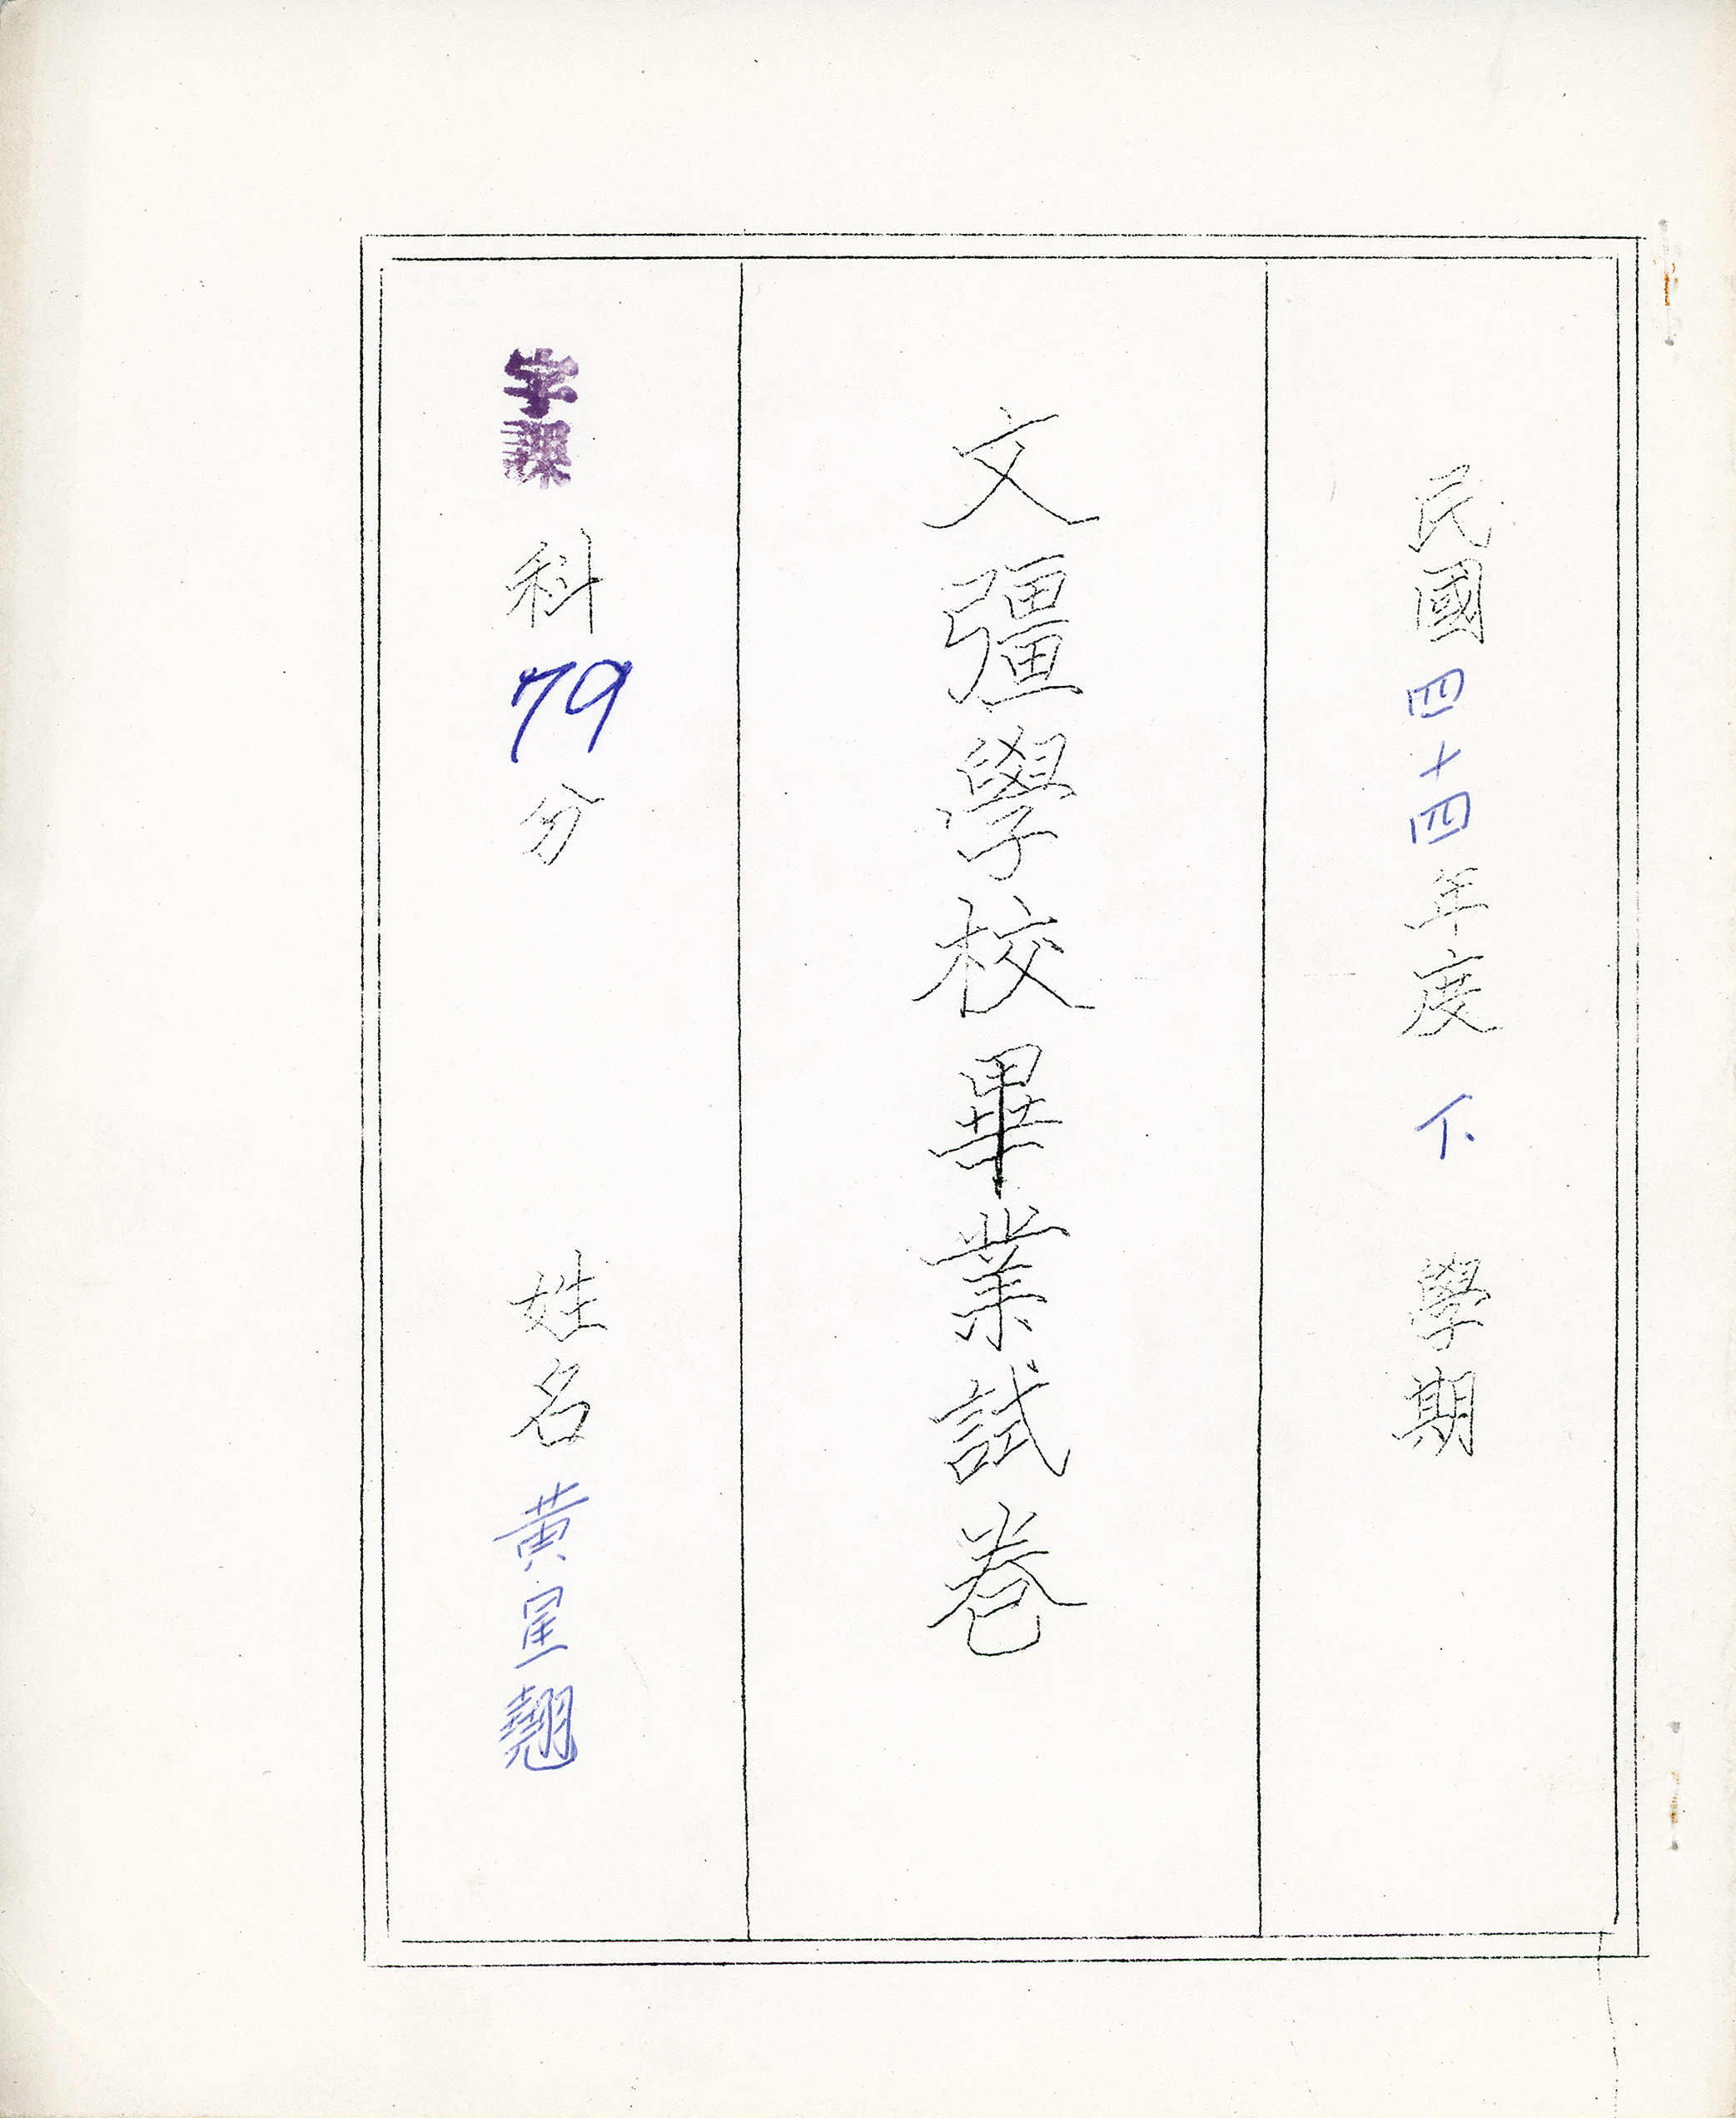 民國四十四年度 下 學期
文彊學校畢業試卷
字課科79分 姓名黄星翹